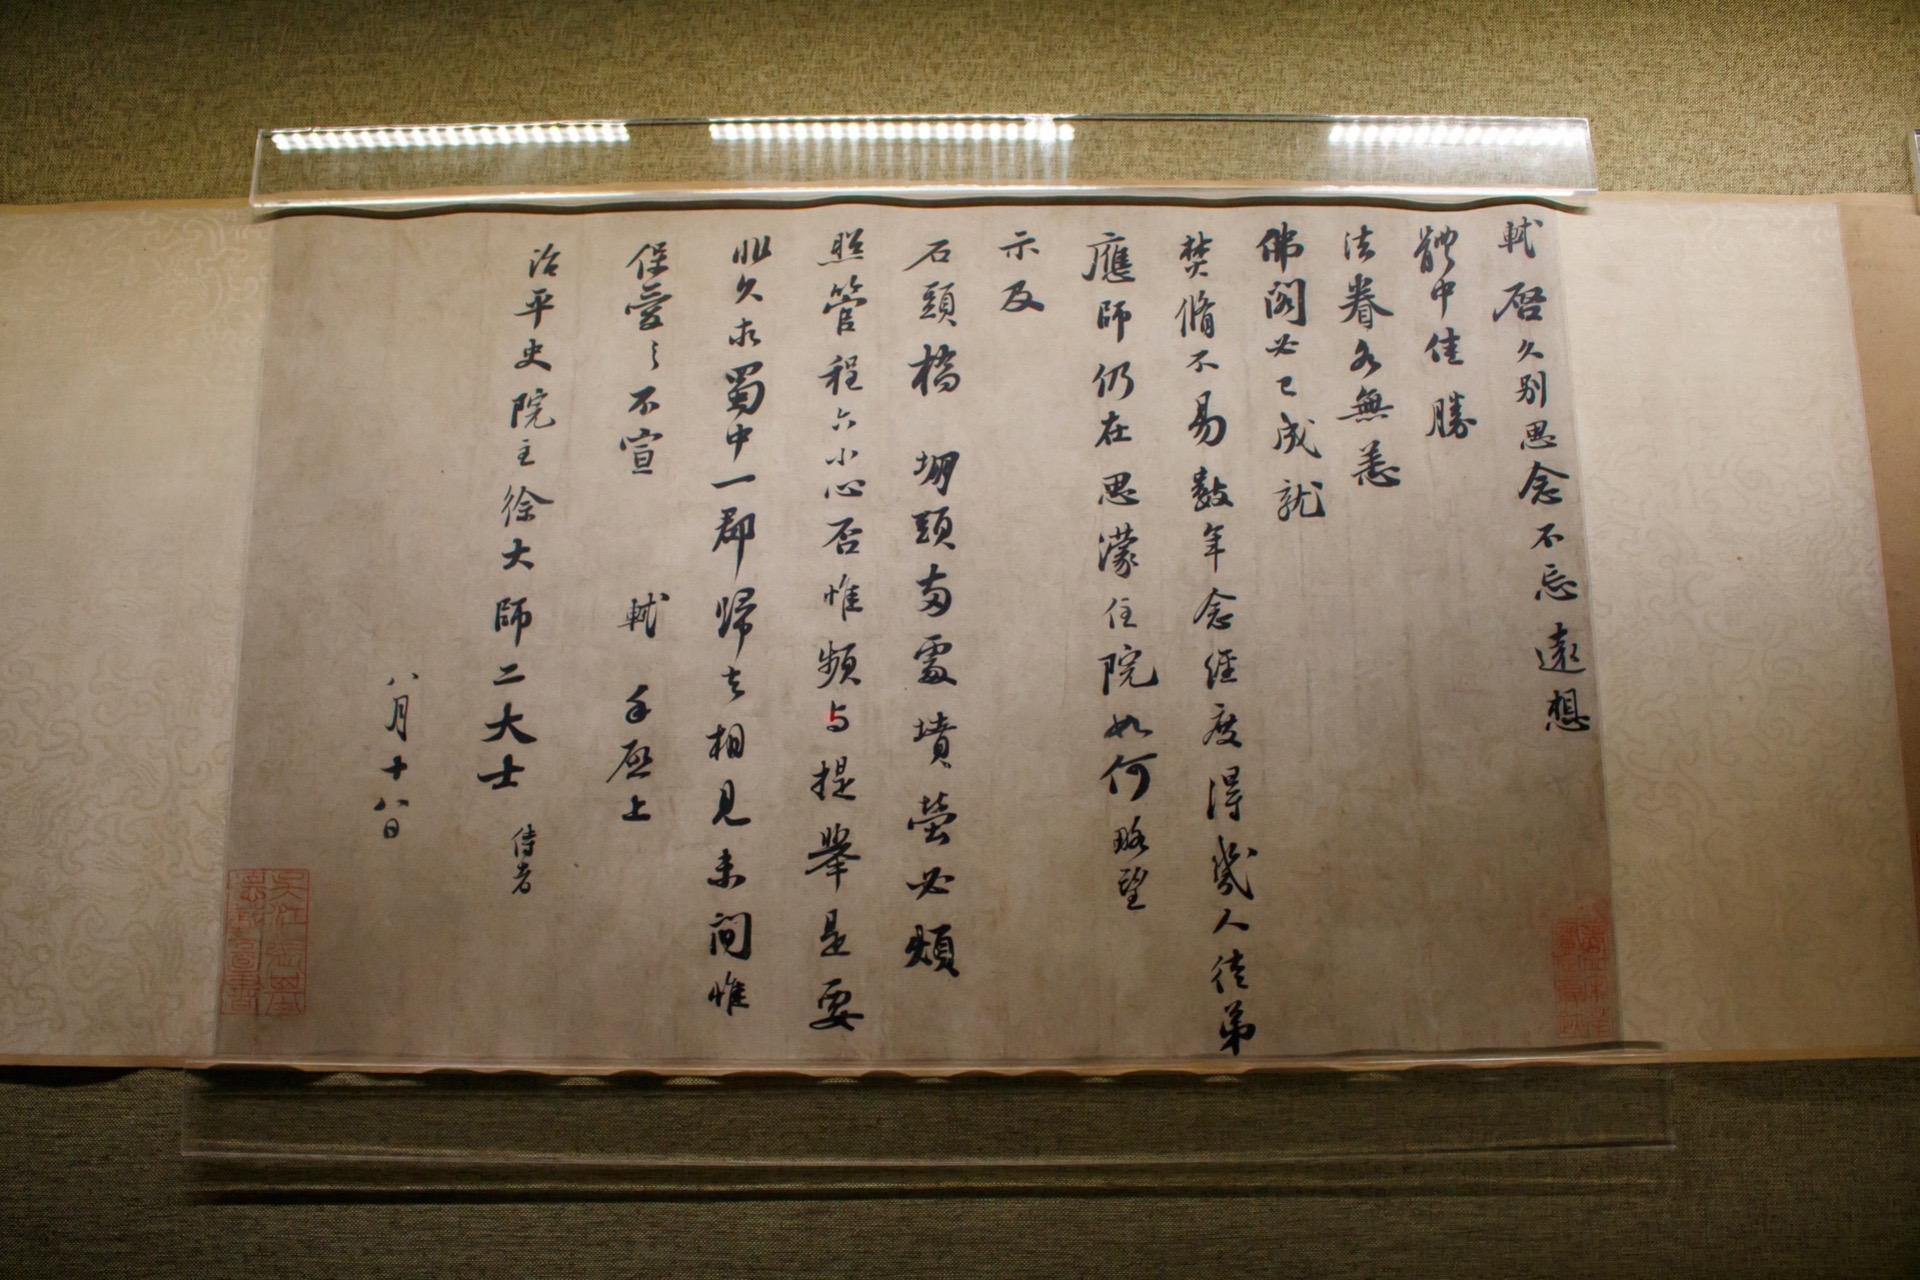 軾啓久别思念不忘遠想
體中佳勝
法眷各無恙
佛閣必已成就
焚脩不易數年念經度得幾人徒弟
應師仍在思濛住院如何略望
示及
石頭橋 堋頭兩處墳塋必煩
照管程六小心否惟頻与提舉是要
非久求蜀中一郡歸去相見未間惟
保愛〻不宣 軾手啓上
治平史院主徐大師二大士 侍者
八月十八日